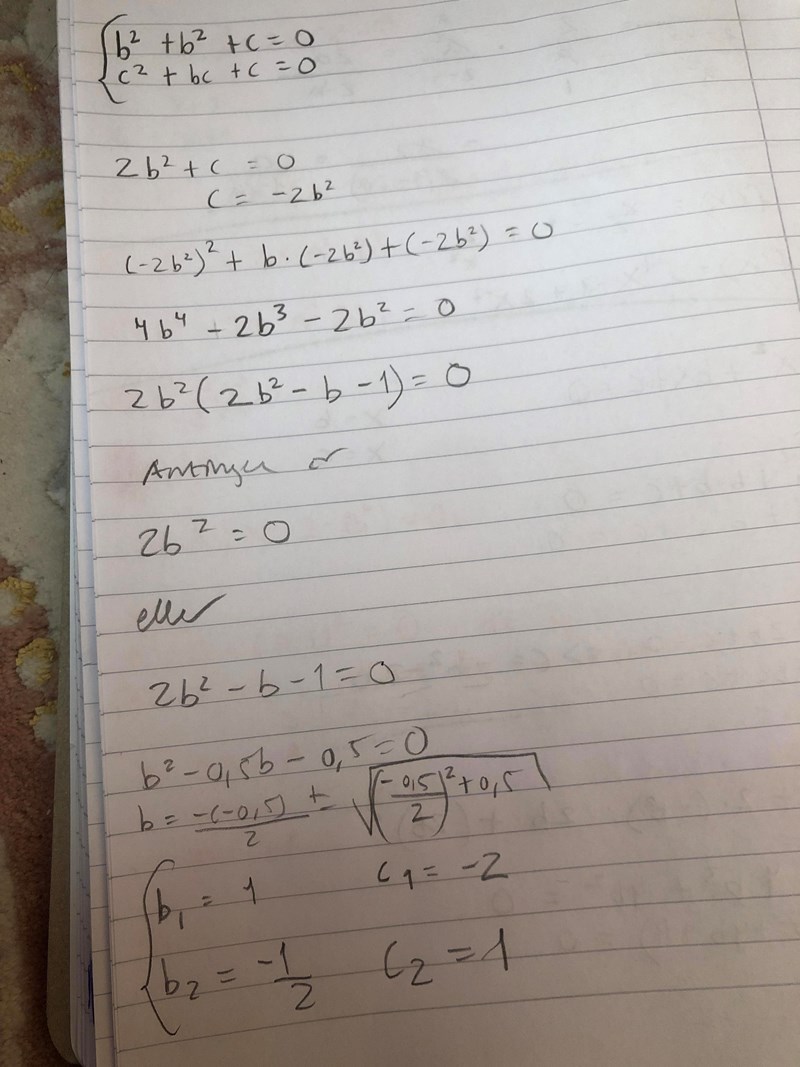 b² + b² + c = 0
c² + bc + c = 0
2b² + c = 0
c = -2b²
(-2b²)² + b · (-2b²) + (-2b²) = 0
4b⁴ - 2b³ - 2b² = 0
2b² (2b² - b - 1) = 0
Antingen är
2b² = 0
eller
2b² - b - 1 = 0
b² - 0,5b - 0,5 = 0
b = -(-0,5)/2 ± √((-0,5/2)² + 0,5)
b₁ = 1 c₁ = -2
b₂ = -1/2 c₂ = 1